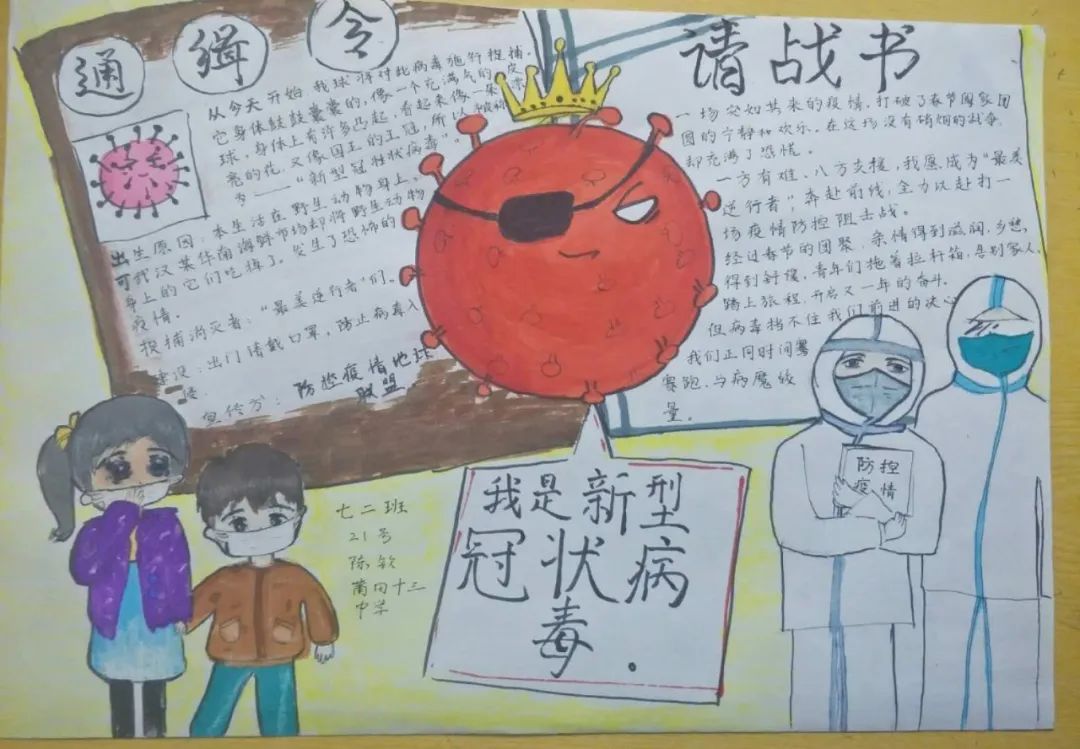 通缉令
从今天开始 我球将对此病毒施行捉捕.
它身体鼓鼓囊囊的,像一个充满气的皮
球,身上有许多凸起,看起来像一朵漂
亮的花,又像国王的王冠,所以被称
为——“新型冠状病毒”
出生原因:本生活在野生动物身上。
可武汉某华南海鲜市场却将野生动物
身上的它们吃掉了。发生了恐怖的
疫情。
捉捕消灭者:“最美逆行者”们。
建议:出门请戴口罩,防止病毒入
侵
宣传方:防控疫情地球
联盟
请战书
一场突如其来的疫情,打破了春节阖家团
圆的宁静和欢乐。在这场没有硝烟的战争,
却充满了恐慌。
一方有难、八方支援,我愿成为“最美
逆行者”,奔赴前线,全力以赴打一
场疫情防控阻击战。
经过春节的团聚,亲情得到滋润,乡愁,
得到舒缓,青年们拖着拉杆箱,告别家人,
踏上旅程,开启又一年的奋斗.
但病毒挡不住我们前进的决心
我们正同时间
赛跑、与病魔较
量。
防控
疫情
七二班
21号
陈钦
莆田十三
中学
我是新型
冠状病
毒.